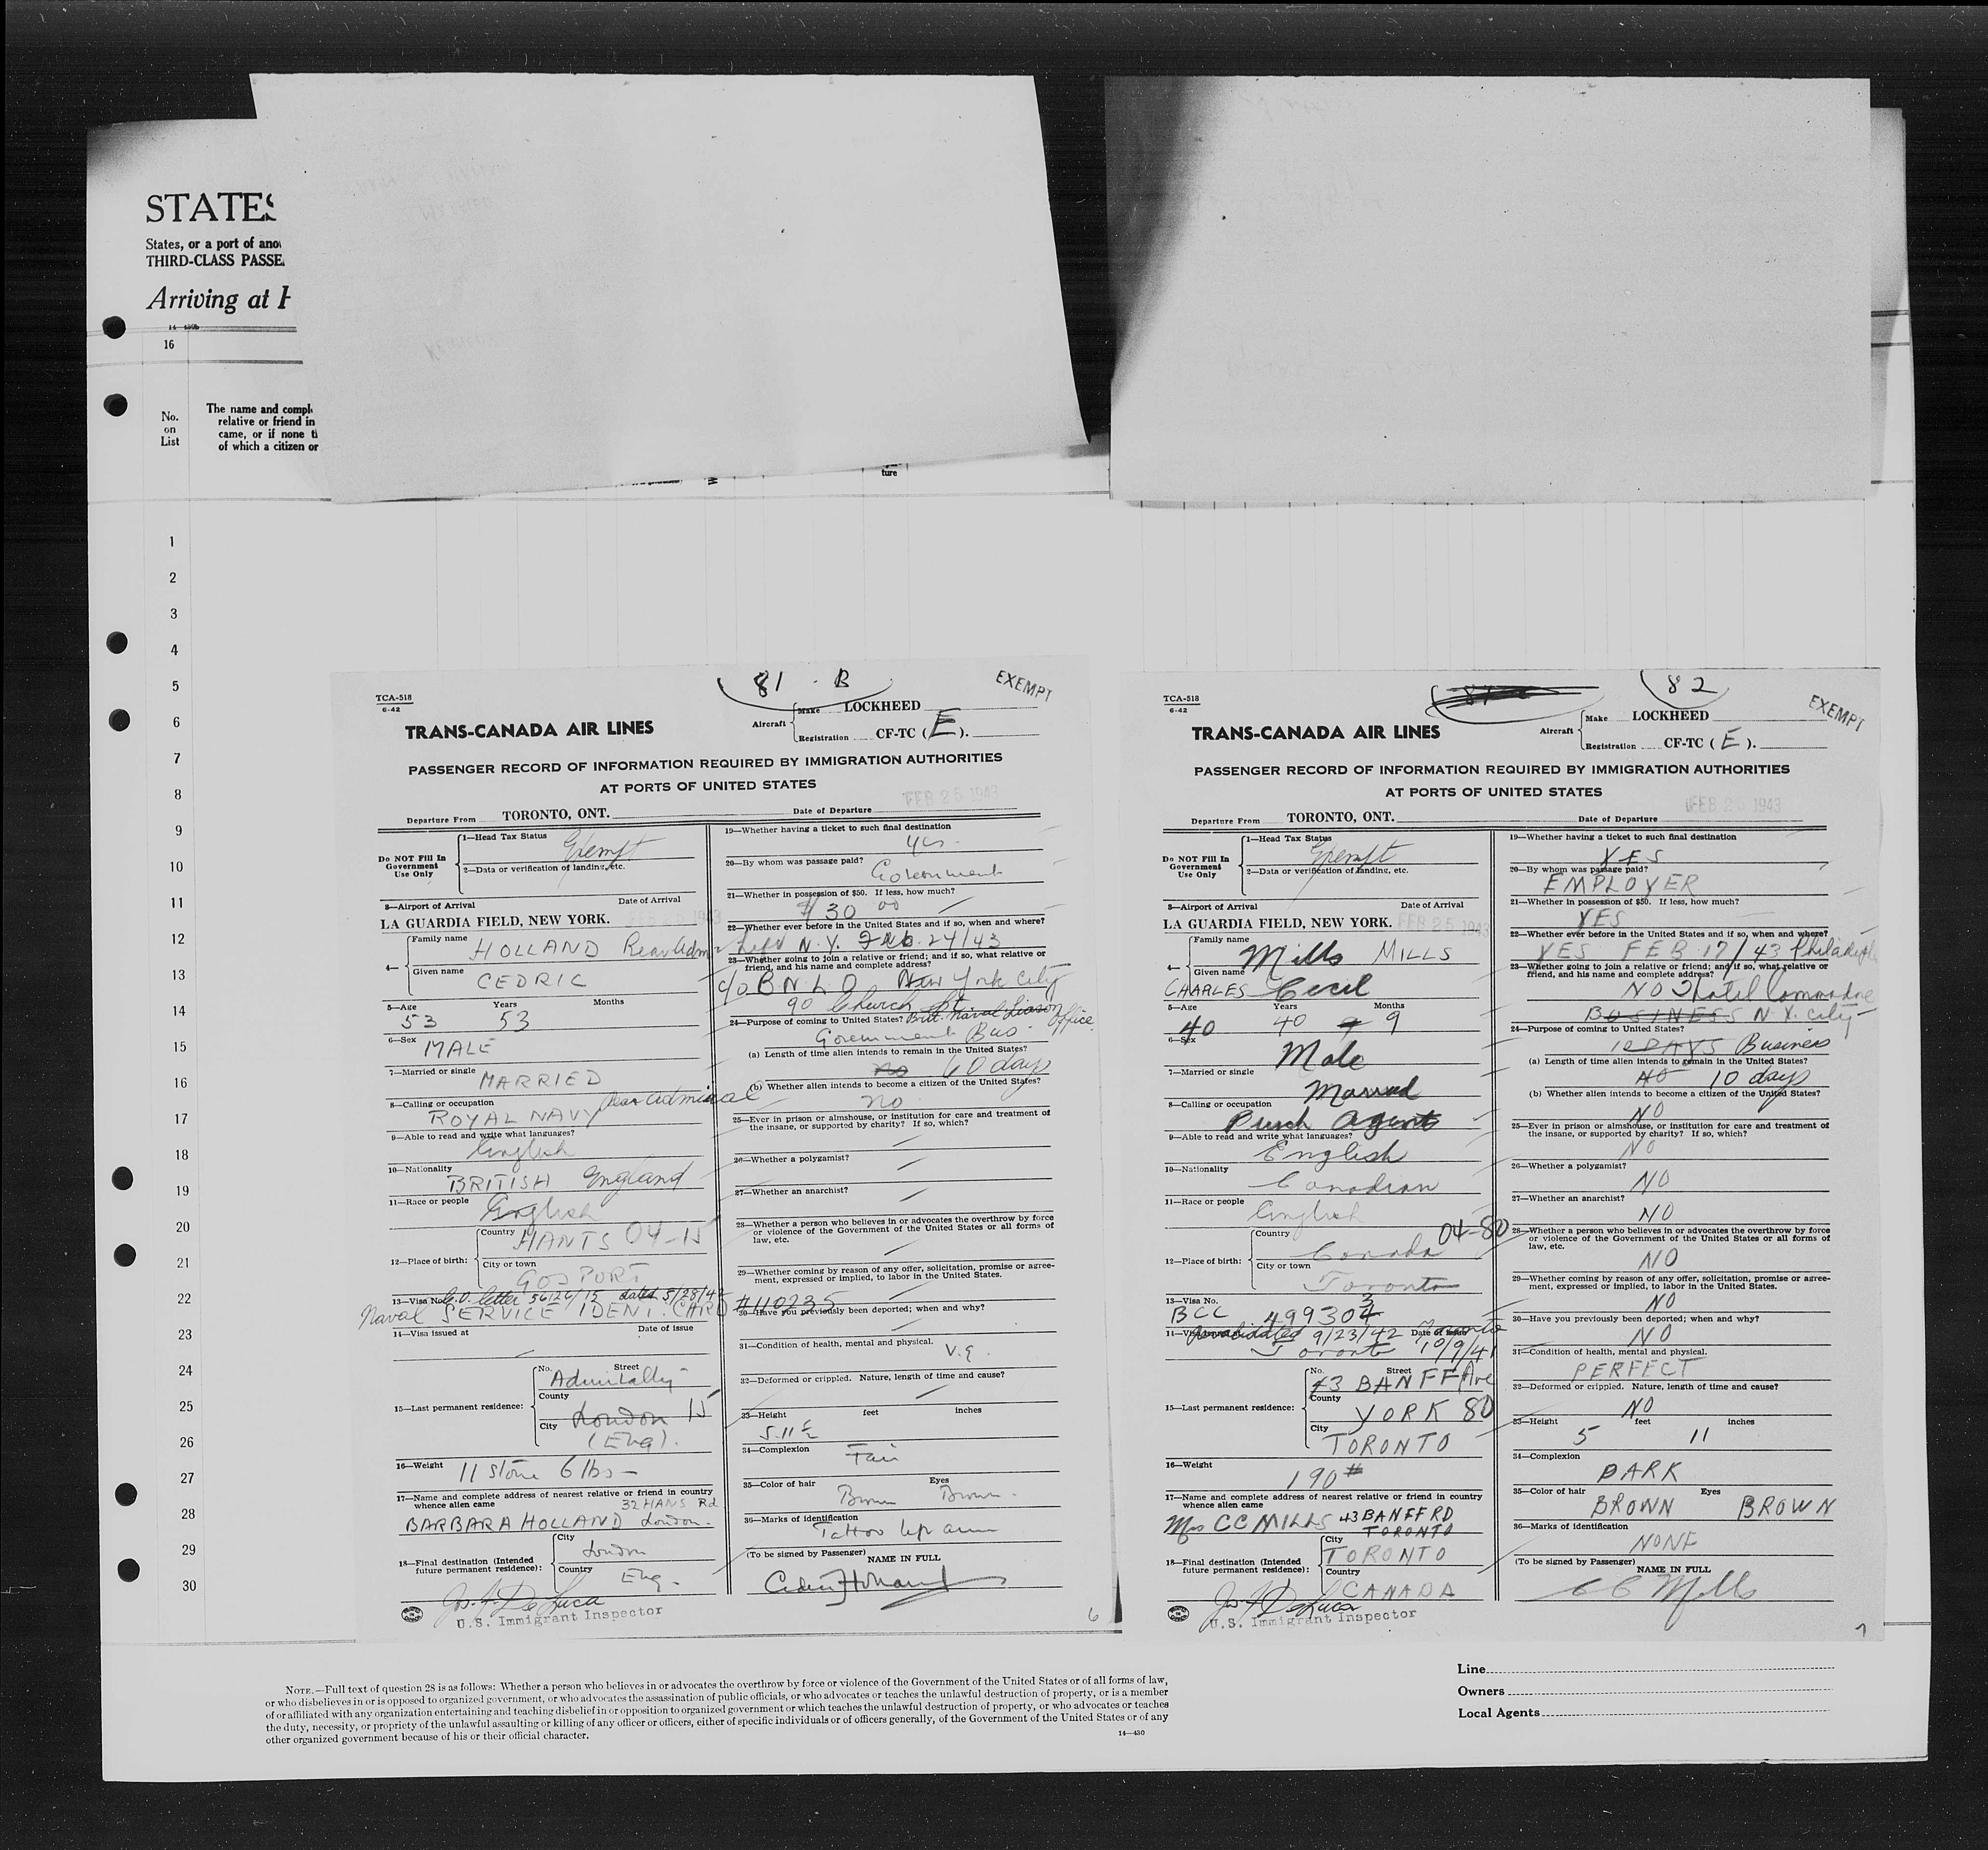 STATES
States, or a port of ano
THIRD-CLASS PASSE
Arriving at H
16
No.
on
List
The name and compl
relative or friend in
came, or if none t
of which a citizen or
ture
1
2
3
4
5
6
7
8
9
10
11
12
13
14
15
16
17
18
19
20
21
22
23
24
25
26
27
28
29
30
TCA-518
6-42
81 . B
EXEMPT
TRANS-CANADA AIR LINES
Aircraft
Make LOCKHEED
Registration CF-TC (E).
PASSENGER RECORD OF INFORMATION REQUIRED BY IMMIGRATION AUTHORITIES
AT PORTS OF UNITED STATES
FEB 25 1943
Departure From TORONTO, ONT. Date of Departure
Do NOT Fill In
Government
Use Only
1—Head Tax Status
Exempt
2—Data or verification of landing, etc.
3—Airport of Arrival Date of Arrival
LA GUARDIA FIELD, NEW YORK. FEB 25 1943
4—
Family name
HOLLAND Rear Adm
Given name
CEDRIC
5—Age Years Months
53 53
6—Sex
MALE
7—Married or single
MARRIED
8—Calling or occupation
ROYAL NAVY Rear Admiral
9—Able to read and write what languages?
English
10—Nationality
BRITISH England
11—Race or people
English
12—Place of birth:
Country
HANTS 04-15
City or town
GOSPORT
13—Visa No. letter 56126/15 dated 5/28/42
Naval SERVICE IDENT. CARD #110235
14—Visa issued at Date of issue
15—Last permanent residence:
No. Street
Admiralty
County
London 15
City
(Eng).
16—Weight 11 Stone 6 lbs —
17—Name and complete address of nearest relative or friend in country
whence alien came 32 HANS Rd
BARBARA HOLLAND London.
18—Final destination (Intended
future permanent residence):
City
London
Country
Eng.
Jos. F. De Luca
U.S. Immigrant Inspector
19—Whether having a ticket to such final destination
yes.
20—By whom was passage paid?
Government
21—Whether in possession of $50. If less, how much?
$30 00
22—Whether ever before in the United States and if so, when and where?
Left N.Y. Feb. 24/43
23—Whether going to join a relative or friend; and if so, what relative or
friend, and his name and complete address?
c/o B.N.L.O. New York City
90 Church St
24—Purpose of coming to United States? Brit. Naval Liason Office.
Government Bus.
(a) Length of time alien intends to remain in the United States?
no 60 days
(b) Whether alien intends to become a citizen of the United States?
no
25—Ever in prison or almshouse, or institution for care and treatment of
the insane, or supported by charity? If so, which?
26—Whether a polygamist?
27—Whether an anarchist?
28—Whether a person who believes in or advocates the overthrow by force
or violence of the Government of the United States or all forms of
law, etc.
29—Whether coming by reason of any offer, solicitation, promise or agree-
ment, expressed or implied, to labor in the United States.
30—Have you previously been deported; when and why?
31—Condition of health, mental and physical.
V.g.
32—Deformed or crippled. Nature, length of time and cause?
33—Height feet inches
5.11½
34—Complexion
Fair
35—Color of hair Eyes
Brown Brown.
36—Marks of identification
Tattoo left arm
(To be signed by Passenger) NAME IN FULL
Cedric Holland
6
TCA-518
6-42
82
EXEMPT
TRANS-CANADA AIR LINES
Aircraft
Make LOCKHEED
Registration CF-TC (E).
PASSENGER RECORD OF INFORMATION REQUIRED BY IMMIGRATION AUTHORITIES
AT PORTS OF UNITED STATES
FEB 25 1943
Departure From TORONTO, ONT. Date of Departure
Do NOT Fill In
Government
Use Only
1—Head Tax Status
Exempt
2—Data or verification of landing, etc.
3—Airport of Arrival Date of Arrival
LA GUARDIA FIELD, NEW YORK. FEB 25 1943
4—
Family name
Mills MILLS
Given name
CHARLES Cecil
5—Age Years Months
40 40 9 9
6—Sex
Male
7—Married or single
Married
8—Calling or occupation
Purch Agent
9—Able to read and write what languages?
English
10—Nationality
Canadian
11—Race or people
English
12—Place of birth:
Country 04-80
Canada
City or town
Toronto
13—Visa No.
BCC 499303
14— 9/23/42 Toronto
Toronto 10/9/41
15—Last permanent residence:
No. Street
43 BANFF Ave
County
YORK 80
City
TORONTO
16—Weight
190#
17—Name and complete address of nearest relative or friend in country
whence alien came
Mrs CC MILLS 43 BANFF RD
TORONTO
18—Final destination (Intended
future permanent residence):
City
TORONTO
Country
CANADA
Jos. F. De Luca
U.S. Immigrant Inspector
19—Whether having a ticket to such final destination
YES
20—By whom was passage paid?
EMPLOYER
21—Whether in possession of $50. If less, how much?
YES
22—Whether ever before in the United States and if so, when and where?
YES FEB 17/43 Philadelphia
23—Whether going to join a relative or friend; and if so, what relative or
friend, and his name and complete address?
NO Hotel Commodore
BUSINESS N.Y. City
24—Purpose of coming to United States?
10 DAYS Business
(a) Length of time alien intends to remain in the United States?
NO 10 days
(b) Whether alien intends to become a citizen of the United States?
NO
25—Ever in prison or almshouse, or institution for care and treatment of
the insane, or supported by charity? If so, which?
NO
26—Whether a polygamist?
NO
27—Whether an anarchist?
NO
28—Whether a person who believes in or advocates the overthrow by force
or violence of the Government of the United States or all forms of
law, etc.
NO
29—Whether coming by reason of any offer, solicitation, promise or agree-
ment, expressed or implied, to labor in the United States.
NO
30—Have you previously been deported; when and why?
NO
31—Condition of health, mental and physical.
PERFECT
32—Deformed or crippled. Nature, length of time and cause?
NO
33—Height feet inches
5 11
34—Complexion
DARK
35—Color of hair Eyes
BROWN BROWN
36—Marks of identification
NONE
(To be signed by Passenger) NAME IN FULL
CC Mills
7
NOTE.—Full text of question 28 is as follows: Whether a person who believes in or advocates the overthrow by force or violence of the Government of the United States or of all forms of law,
or who disbelieves in or is opposed to organized government, or who advocates the assassination of public officials, or who advocates or teaches the unlawful destruction of property, or is a member
of or affiliated with any organization entertaining and teaching disbelief in or opposition to organized government or which teaches the unlawful destruction of property, or who advocates or teaches
the duty, necessity, or propriety of the unlawful assaulting or killing of any officer or officers, either of specific individuals or of officers generally, of the Government of the United States or of any
other organized government because of his or their official character.
14—430
Line
Owners
Local Agents